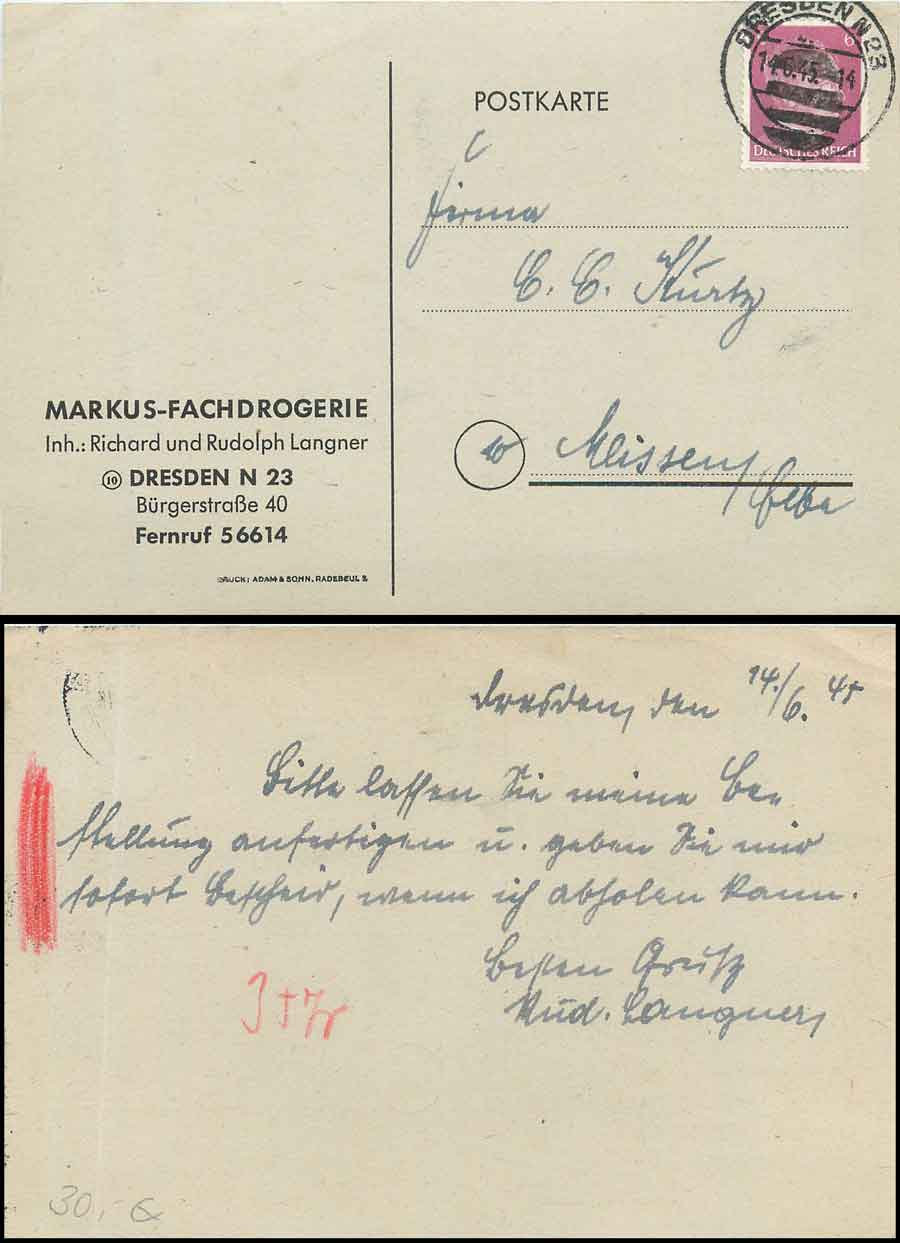 DRESDEN N 23
14.6.45. -14
6
DEUTSCHES REICH
POSTKARTE
Firma
C. E. Kurtz
10 Meissen/Elbe
MARKUS-FACHDROGERIE
Inh.: Richard und Rudolph Langner
10 DRESDEN N 23
Bürgerstraße 40
Fernruf 56614
DRUCK: ADAM & SOHN, RADEBEUL 2
Dresden, den 14./6. 45
Bitte lassen Sie meine Be-
stellung anfertigen u. geben Sie mir
sofort Bescheid, wenn ich abholen kann.
Besten Gruß
Rud. Langner,
30,- €